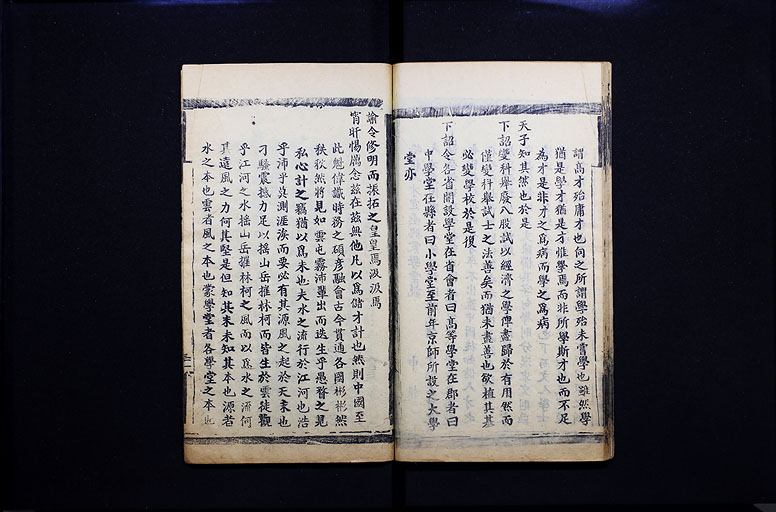 謂高才殆庸才也向之所謂學殆未嘗學也雖然學
猶是學才猶是才惟學焉而非所學斯才也而不足
為才是非才之為病而學之為病
天子知其然也於是
下詔變科舉廢八股試以經濟之學俾盡歸於有用然而
僅變科舉試士之法善矣而猶未盡善也欲植其基
必變學校於是復
下詔令各省開設學堂在省會者曰高等學堂在郡者曰
中學堂在縣者曰小學堂至前年京師所設之大學
堂亦
諭令修明而振拓之皇皇焉汲汲焉
宵旰惕厲念茲在茲無他凡以為儲才計也然則中國至
此魁偉識時務之碩彥融會古今貫通各國彬彬然
秩秩然將見如雲屯霧沛輩出而迭生乎愚瞀之見
私心計之竊猶以為未也夫水之流行於江河也浩
乎沛乎莫測涯涘而要必有其源風之起於天末也
刁騷震撼力足以搖山岳摧林柯而皆生於雲徒觀
乎江河之水搖山岳摧林柯之風而以為水之流何
其遠風之力何其堅是但知其末未知其本也源者
水之本也雲者風之本也蒙學堂者各學堂之本也